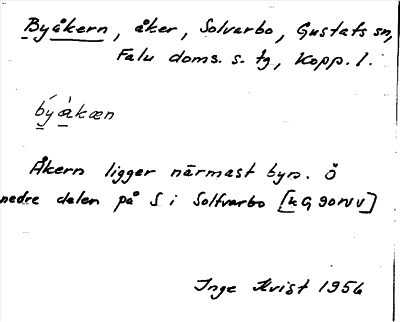 Byåkern, åker, Solvarbo, Gustafs sn,
Falu doms. s. tg, Kopp. l.
bý å̀kæn
Åkern ligger närmast byn. Ö
nedre delen på S i Solfvarbo [kG 90NV]
Inge Kvist 1956